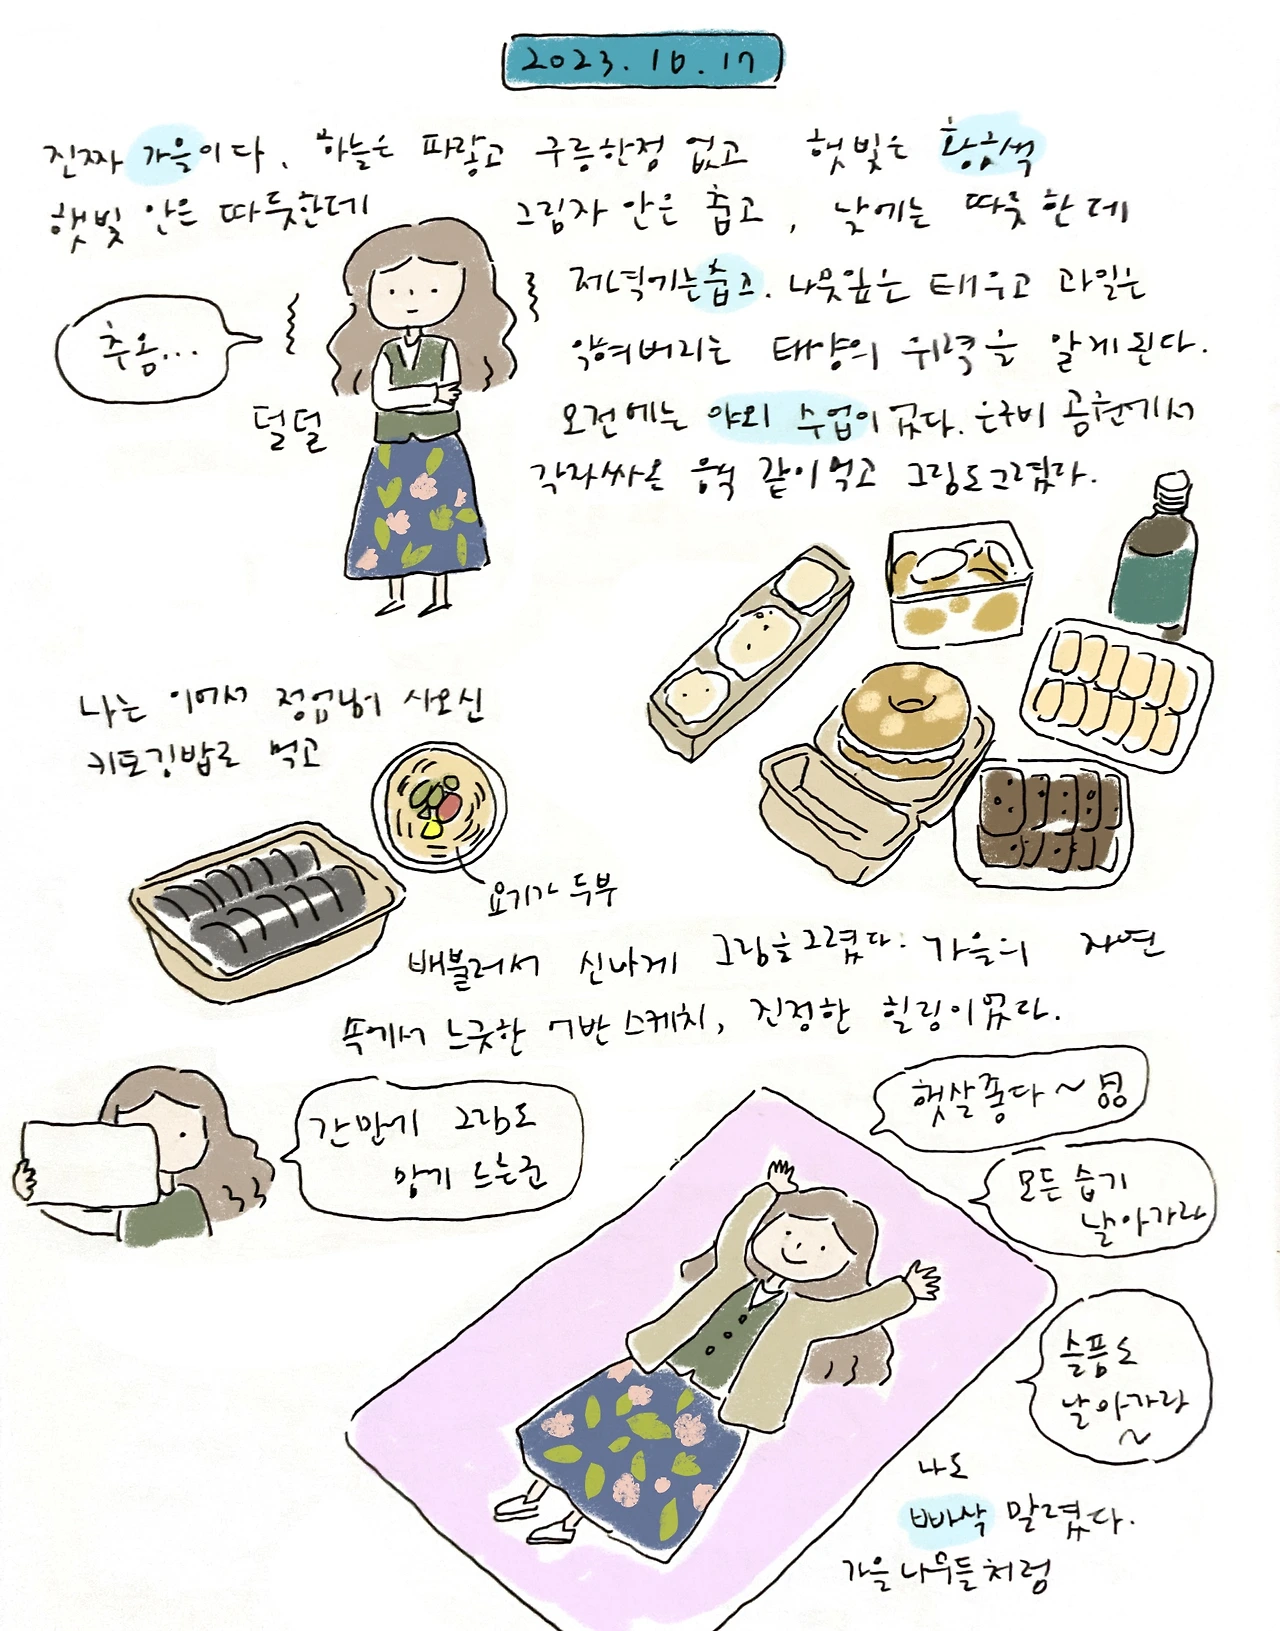 2023. 10. 17
진짜 가을이다. 하늘은 파랗고 구름한점 없고 햇빛은 황금색
햇빛 안은 따듯한데 그림자 안은 춥고, 낮에는 따듯한데
저녁에는 춥고. 나뭇잎은 태우고 과일은
익혀버리는 태양의 위력을 알게된다.
추움...
덜덜
오전에는 야외 수업이었다. 은구비 공원에서
각자싸온 음식 같이먹고 그림도그렸다.
나는 이에서 정업님이 사오신
키토김밥을 먹고
요기가 두부
배불러서 신나게 그림을그렸다. 가을의 자연
속에서 느긋한 어반스케치, 진정한 힐링이었다.
간만에 그림도
많이 느는군
햇살좋다~
모든 습기
날아가라
슬픔도
날아가라
~
나도
빠삭 말렸다.
가을나무들처럼